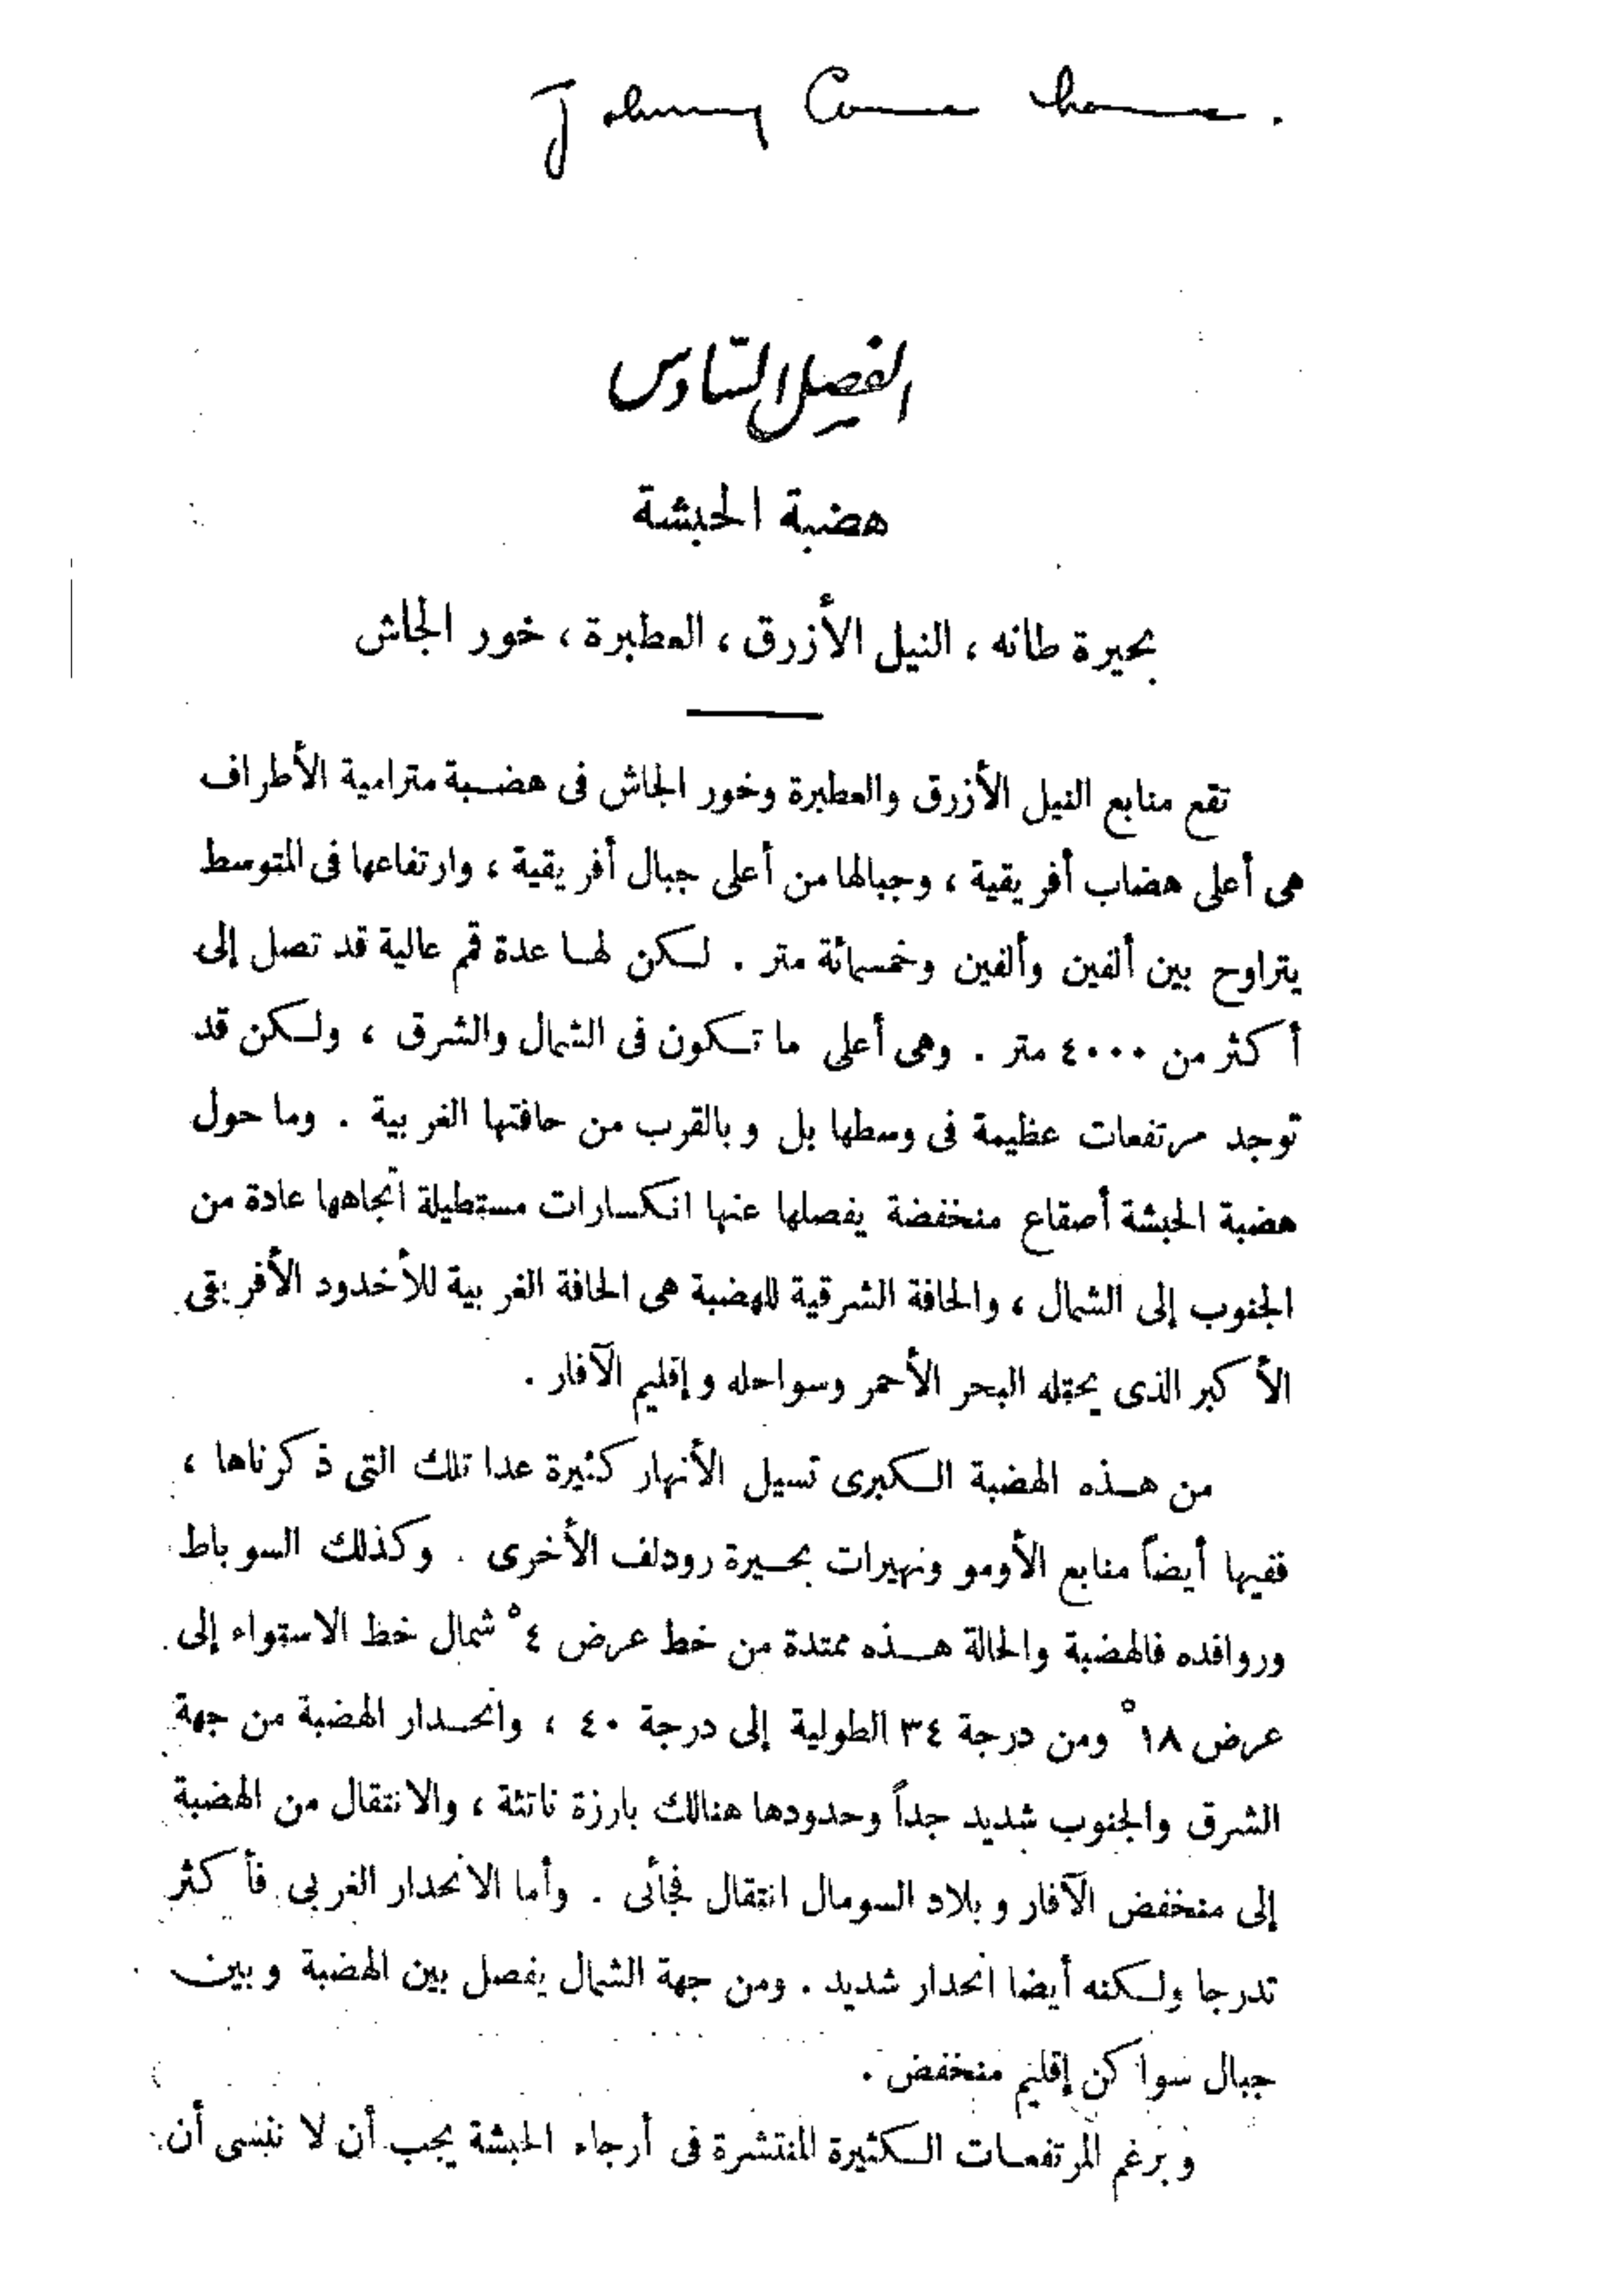 Johnny Come home.
الفصل السادس
هضبة الحبشة
بحيرة طانه ، النيل الأزرق ، العطبرة ، خور الجاش
تقع منابع النيل الأزرق والعطبرة وخور الجاش فى هضبة مترامية الأطراف
هى أعلى هضاب أفريقية ، وجبالها من أعلى جبال أفريقية ، وارتفاعها فى المتوسط
يتراوح بين ألفين وألفين وخمسمائة متر . لكن لها عدة قمم عالية قد تصل إلى
أكثر من ٤٠٠٠ متر . وهى أعلى ما تكون فى الشمال والشرق ، ولكن قد
توجد مرتفعات عظيمة فى وسطها بل وبالقرب من حافتها الغربية . وما حول
هضبة الحبشة أصقاع منخفضة يفصلها عنها انكسارات مستطيلة اتجاهها عادة من
الجنوب إلى الشمال ، والحافة الشرقية للهضبة هى الحافة الغربية للأخدود الأفريقى
الأكبر الذى يحتله البحر الأحمر وسواحله وإقليم الآفار .
من هذه الهضبة الكبرى تسيل الأنهار كثيرة عدا تلك التى ذكرناها ،
ففيها أيضاً منابع الأومو ونهيرات بحيرة رودلف الأخرى . وكذلك السوباط
وروافده فالهضبة والحالة هذه ممتدة من خط عرض ٤° شمال خط الاستواء إلى
عرض ١٨° ومن درجة ٣٤ الطولية إلى درجة ٤٠ ، وانحدار الهضبة من جهة
الشرق والجنوب شديد جداً وحدودها هنالك بارزة ناتئة ، والانتقال من الهضبة
إلى منخفض الآفار وبلاد السومال انتقال فجأئى . وأما الانحدار الغربى فأكثر
تدرجا ولكنه أيضا انحدار شديد . ومن جهة الشمال يفصل بين الهضبة وبين
جبال سواكن إقليم منخفض .
وبرغم المرتفعات الكثيرة المنتشرة فى أرجاء الحبشة يجب أن لا ننسى أن